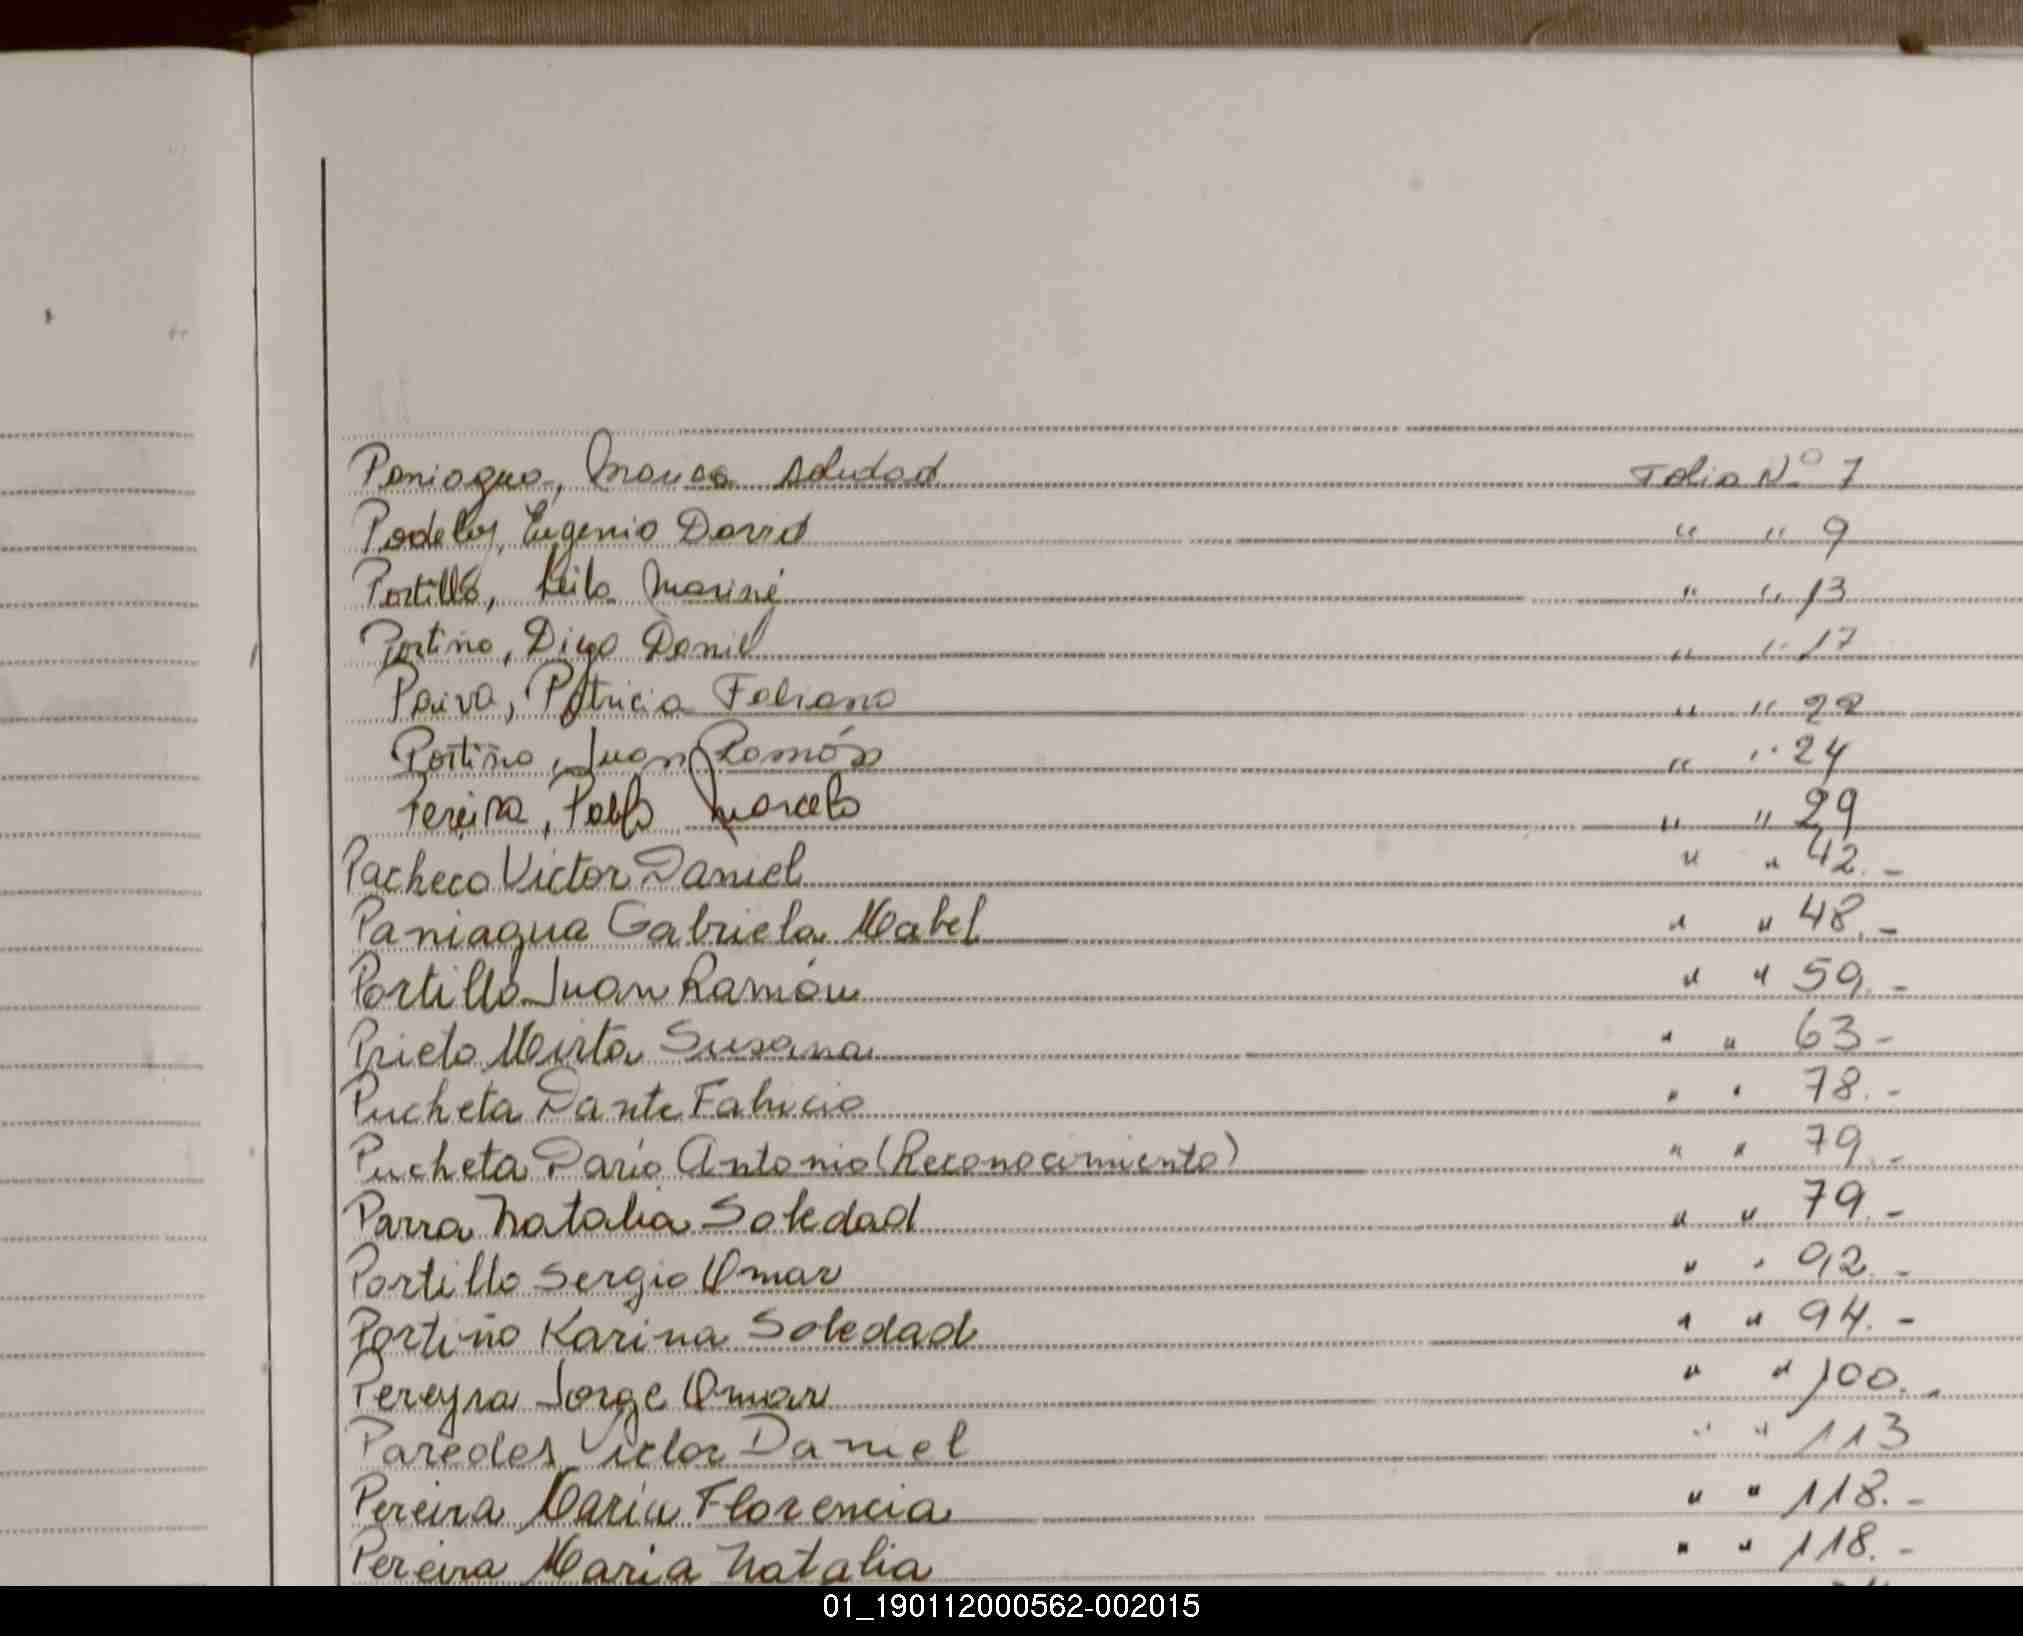 Paniagua, Marica Soledad Folio Nº 7
Podeley, Eugenio David " " 9
Portillo, Leila Mariné " " 13
Portiño, Diego Daniel " " 17
Paiva, Patricia Fabiana " " 22
Portiño, Juan Ramón " " 24
Pereira, Pablo Marcelo " " 29
Pacheco Victor Daniel " " 42.-
Paniagua Gabriela Mabel " " 48.-
Portillo Juan Ramón " " 59.-
Prieto Mirta Susana " " 63-
Pucheta Dante Fabricio " " 78.-
Pucheta Darío Antonio (Reconocimiento) " " 79.-
Parra Natalia Soledad " " 79.-
Portillo Sergio Omar " " 92.-
Portiño Karina Soledad " " 94.-
Pereyra Jorge Omar " " 100.-
Paredes Victor Daniel " " 113
Pereira Maria Florencia " " 118.-
Pereira Maria Natalia " " 118.-
01_190112000562-002015